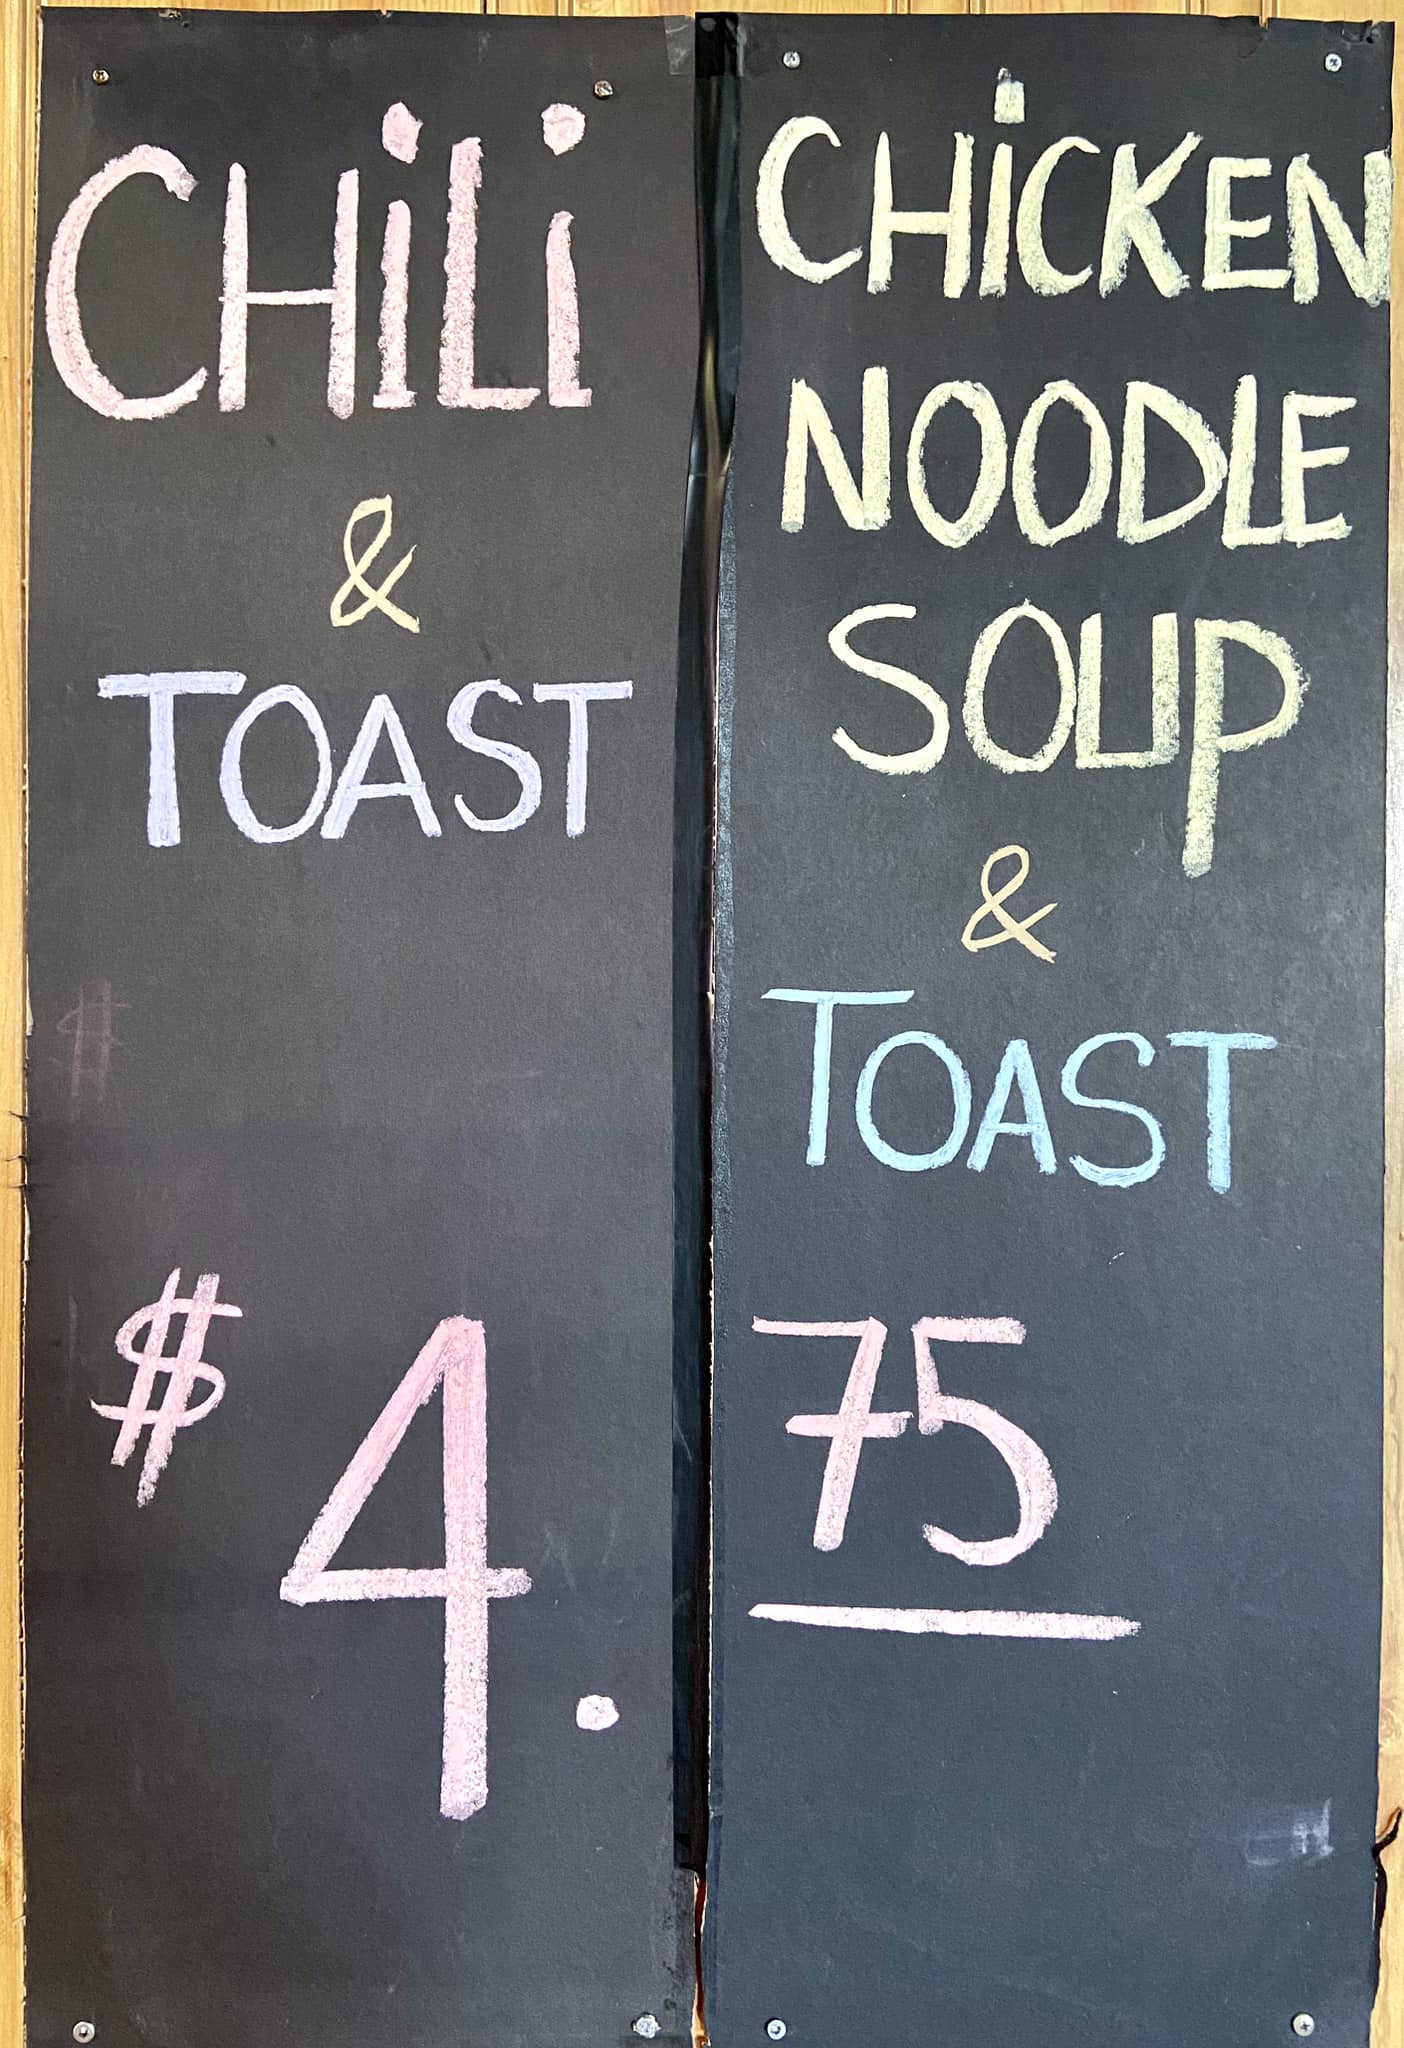 CHiLi
&
TOAST
CHiCKEN
NOODLE
SOUP
&
TOAST
$
$ 4. 75